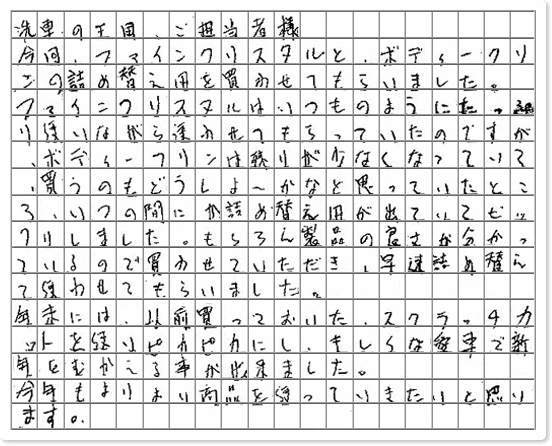 洗車の王国、ご担当者様
今回、ファインクリスタルと、ボディークリ
ンの詰め替え用を買わせてもらいました。
ファインクリスタルはいつものように
り使いながら使わせてもらっていたのですが
、ボディークリンは残りが少なくなっていて
、買うのもどうしよ〜かなと思っていたとこ
ろ、いつの間にか詰め替え用が出ていてビッ
クリしました。もちろん製品の良さが分かっ
ているので買わせていただき、早速詰め替え
て使わせてもらいました。
年末には、以前買っておいた、スクラッチカ
ットを使いピカピカにし、きれいな愛車で新
年をむかえる事が出来ました。
今年もよりよい商品を使っていきたいと思い
ます。